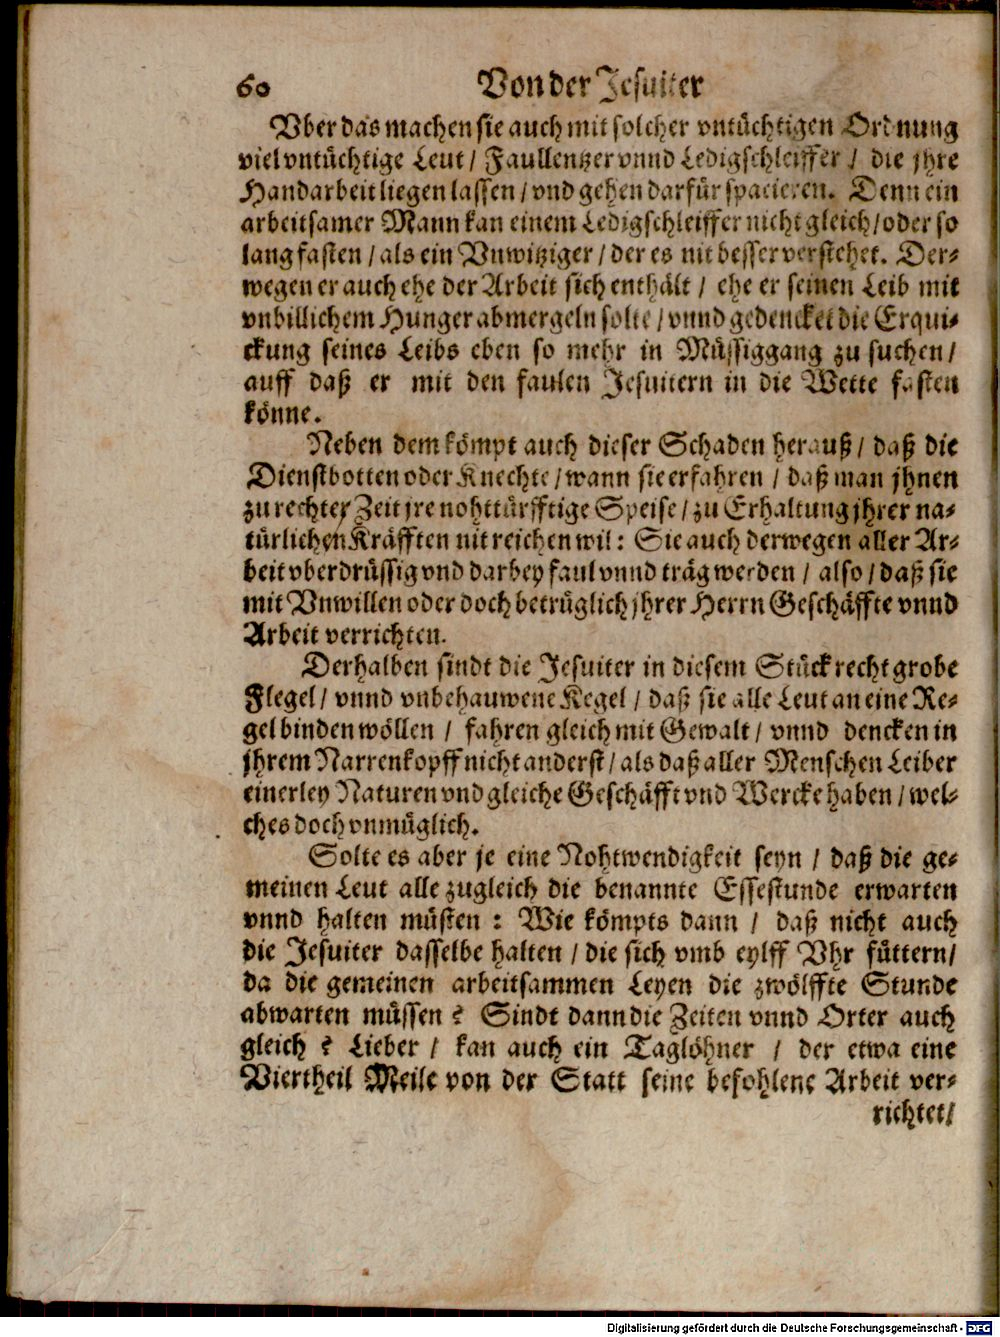 60 Von der Jesuiter
Vber das machen sie auch mit solcher vntüchtigen Ordnung
viel vntüchtige Leut / Faullentzer vnnd Ledigschleiffer / die jhre
Handarbeit liegen lassen / vnd gehen darfür spacieren. Denn ein
arbeitsamer Mann kan einem Ledigschleiffer nicht gleich / oder so
lang fasten / als ein Vnwitziger / der es nit besser verstehet. Der-
wegen er auch ehe der Arbeit sich enthält / ehe er seinen Leib mit
vnbillichem Hunger abmergeln solte / vnnd gedencket die Erqui-
ckung seines Leibs eben so mehr in Müssiggang zu suchen /
auff daß er mit den faulen Jesuitern in die Wette fasten
könne.
Neben dem kömpt auch dieser Schaden herauß / daß die
Dienstbotten oder Knechte / wann sie erfahren / daß man jhnen
zu rechter Zeit jre nohttürfftige Speise / zu Erhaltung jhrer na-
türlichen Kräfften nit reichen wil: Sie auch derwegen aller Ar-
beit vberdrüssig vnd darbey faul vnnd träg werden / also / daß sie
mit Vnwillen oder doch betrüglich jhrer Herrn Geschäffte vnnd
Arbeit verrichten.
Derhalben sindt die Jesuiter in diesem Stück recht grobe
Flegel / vnnd vnbehauwene Kegel / daß sie alle Leut an eine Re-
gel binden wöllen / fahren gleich mit Gewalt / vnnd dencken in
jhrem Narrenkopff nicht anderst / als daß aller Menschen Leiber
einerley Naturen vnd gleiche Geschäfft vnd Wercke haben / wel-
ches doch vnmüglich.
Solte es aber je eine Nohtwendigkeit seyn / daß die ge-
meinen Leut alle zugleich die benannte Essestunde erwarten
vnnd halten müsten : Wie kömpts dann / daß nicht auch
die Jesuiter dasselbe halten / die sich vmb eylff Vhr füttern /
da die gemeinen arbeitsammen Leyen die zwölffte Stunde
abwarten müssen ? Sindt dann die Zeiten vnnd Orter auch
gleich ? Lieber / kan auch ein Taglöhner / der etwa eine
Viertheil Meile von der Statt seine befohlene Arbeit ver-
richtet /
Digitalisierung gefördert durch die Deutsche Forschungsgemeinschaft - DFG